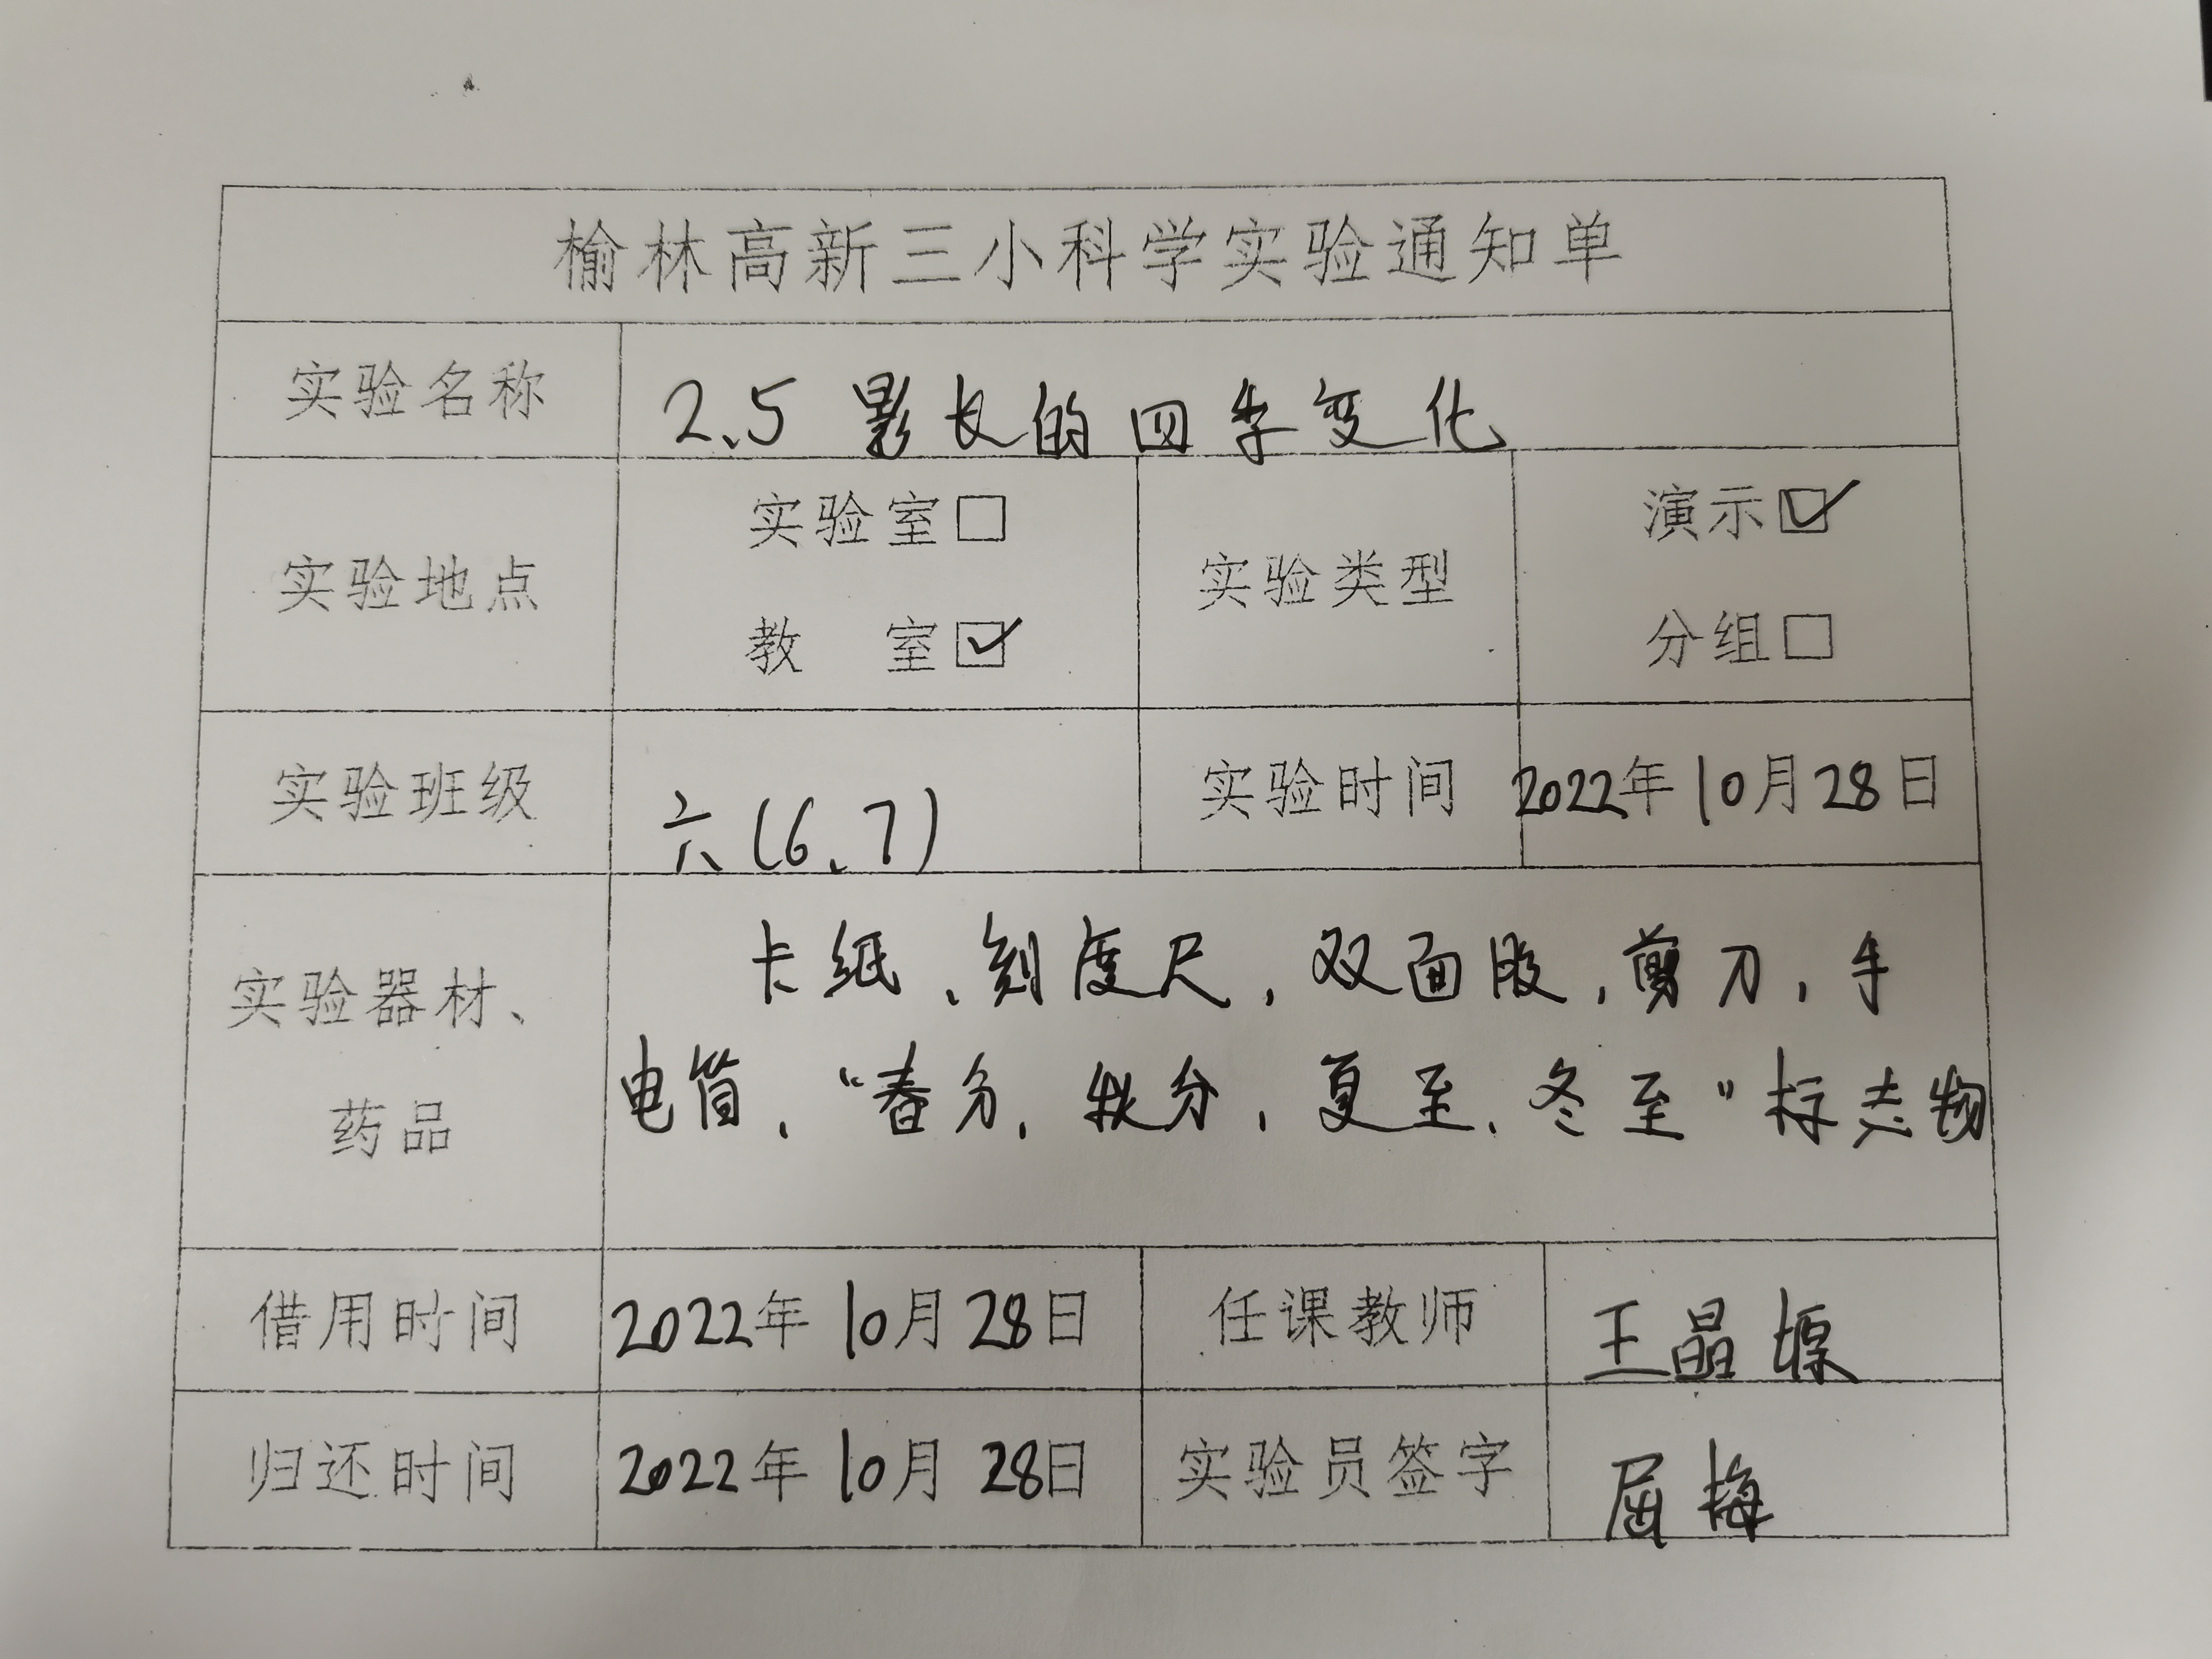 榆林高新三小科学实验通知单
实验名称 2.5 影长的四季变化
实验地点 实验室□ 教 室☑ 实验类型 演示☑ 分组□
实验班级 六(6、7) 实验时间 2022年10月28日
实验器材、药品 卡纸、刻度尺,双面胶,剪刀,手
电筒、“春分、秋分,夏至、冬至”标志物
借用时间 2022年10月28日 任课教师 王晶
归还时间 2022年10月28日 实验员签字 屈梅